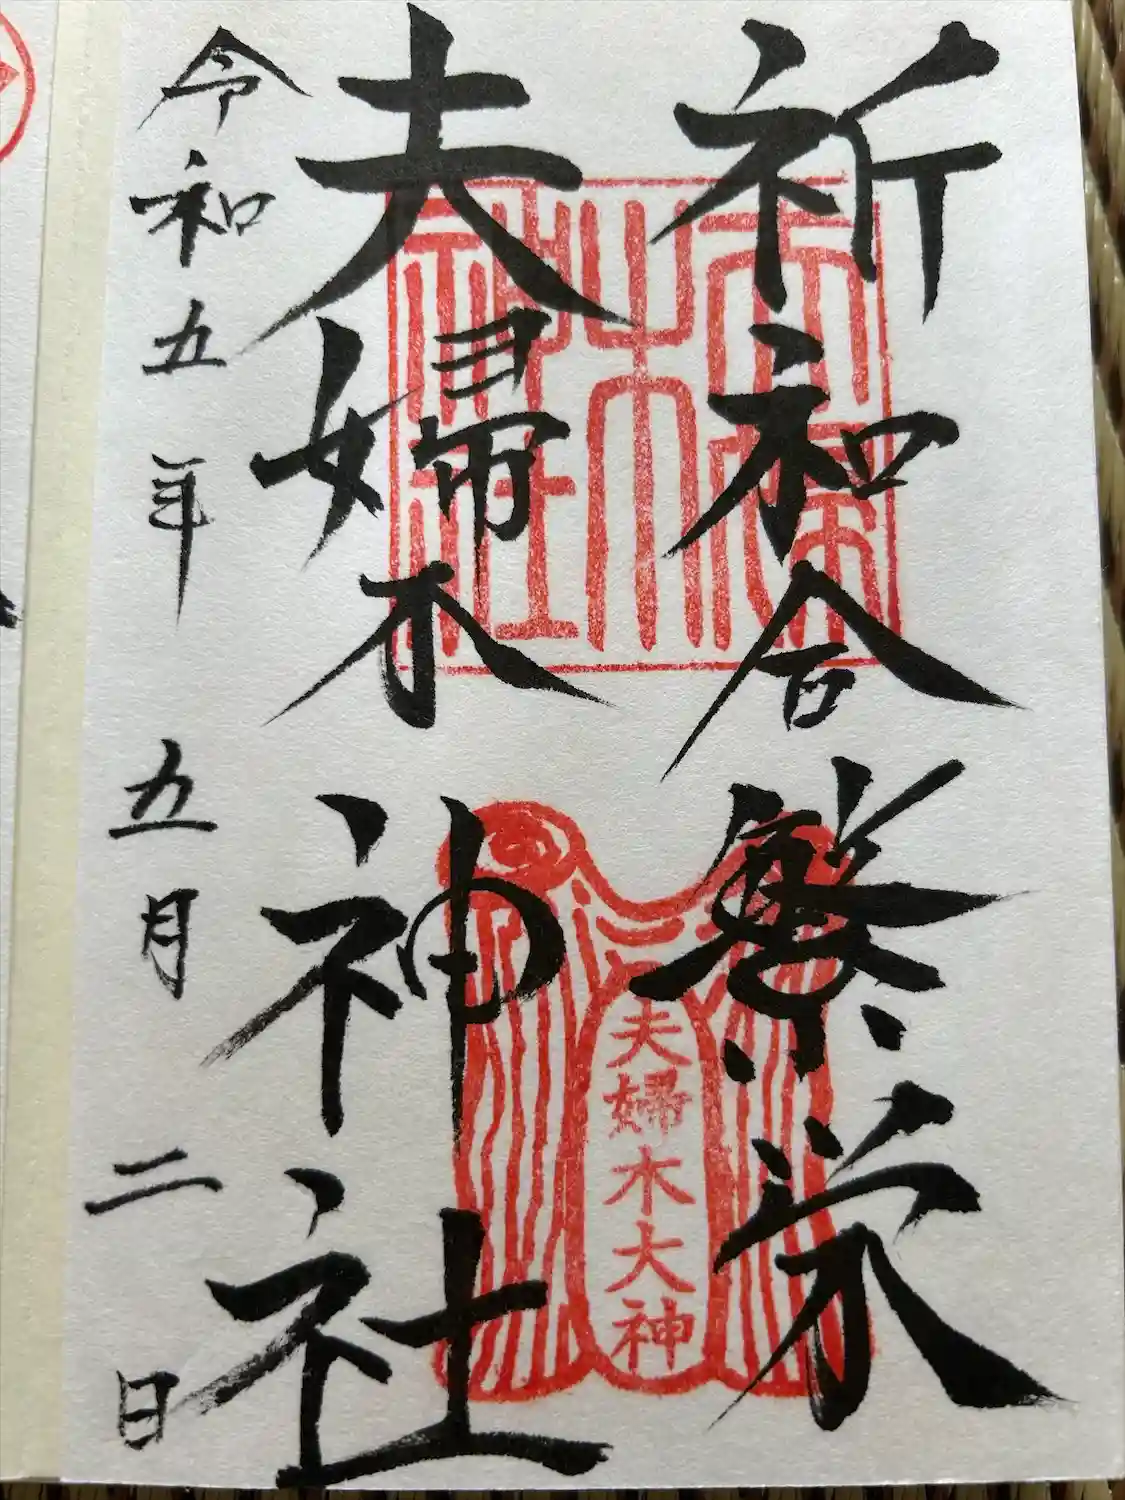 祈和合繁栄
夫婦木神社
令和五年五月二日
夫婦木神社
夫婦木大神